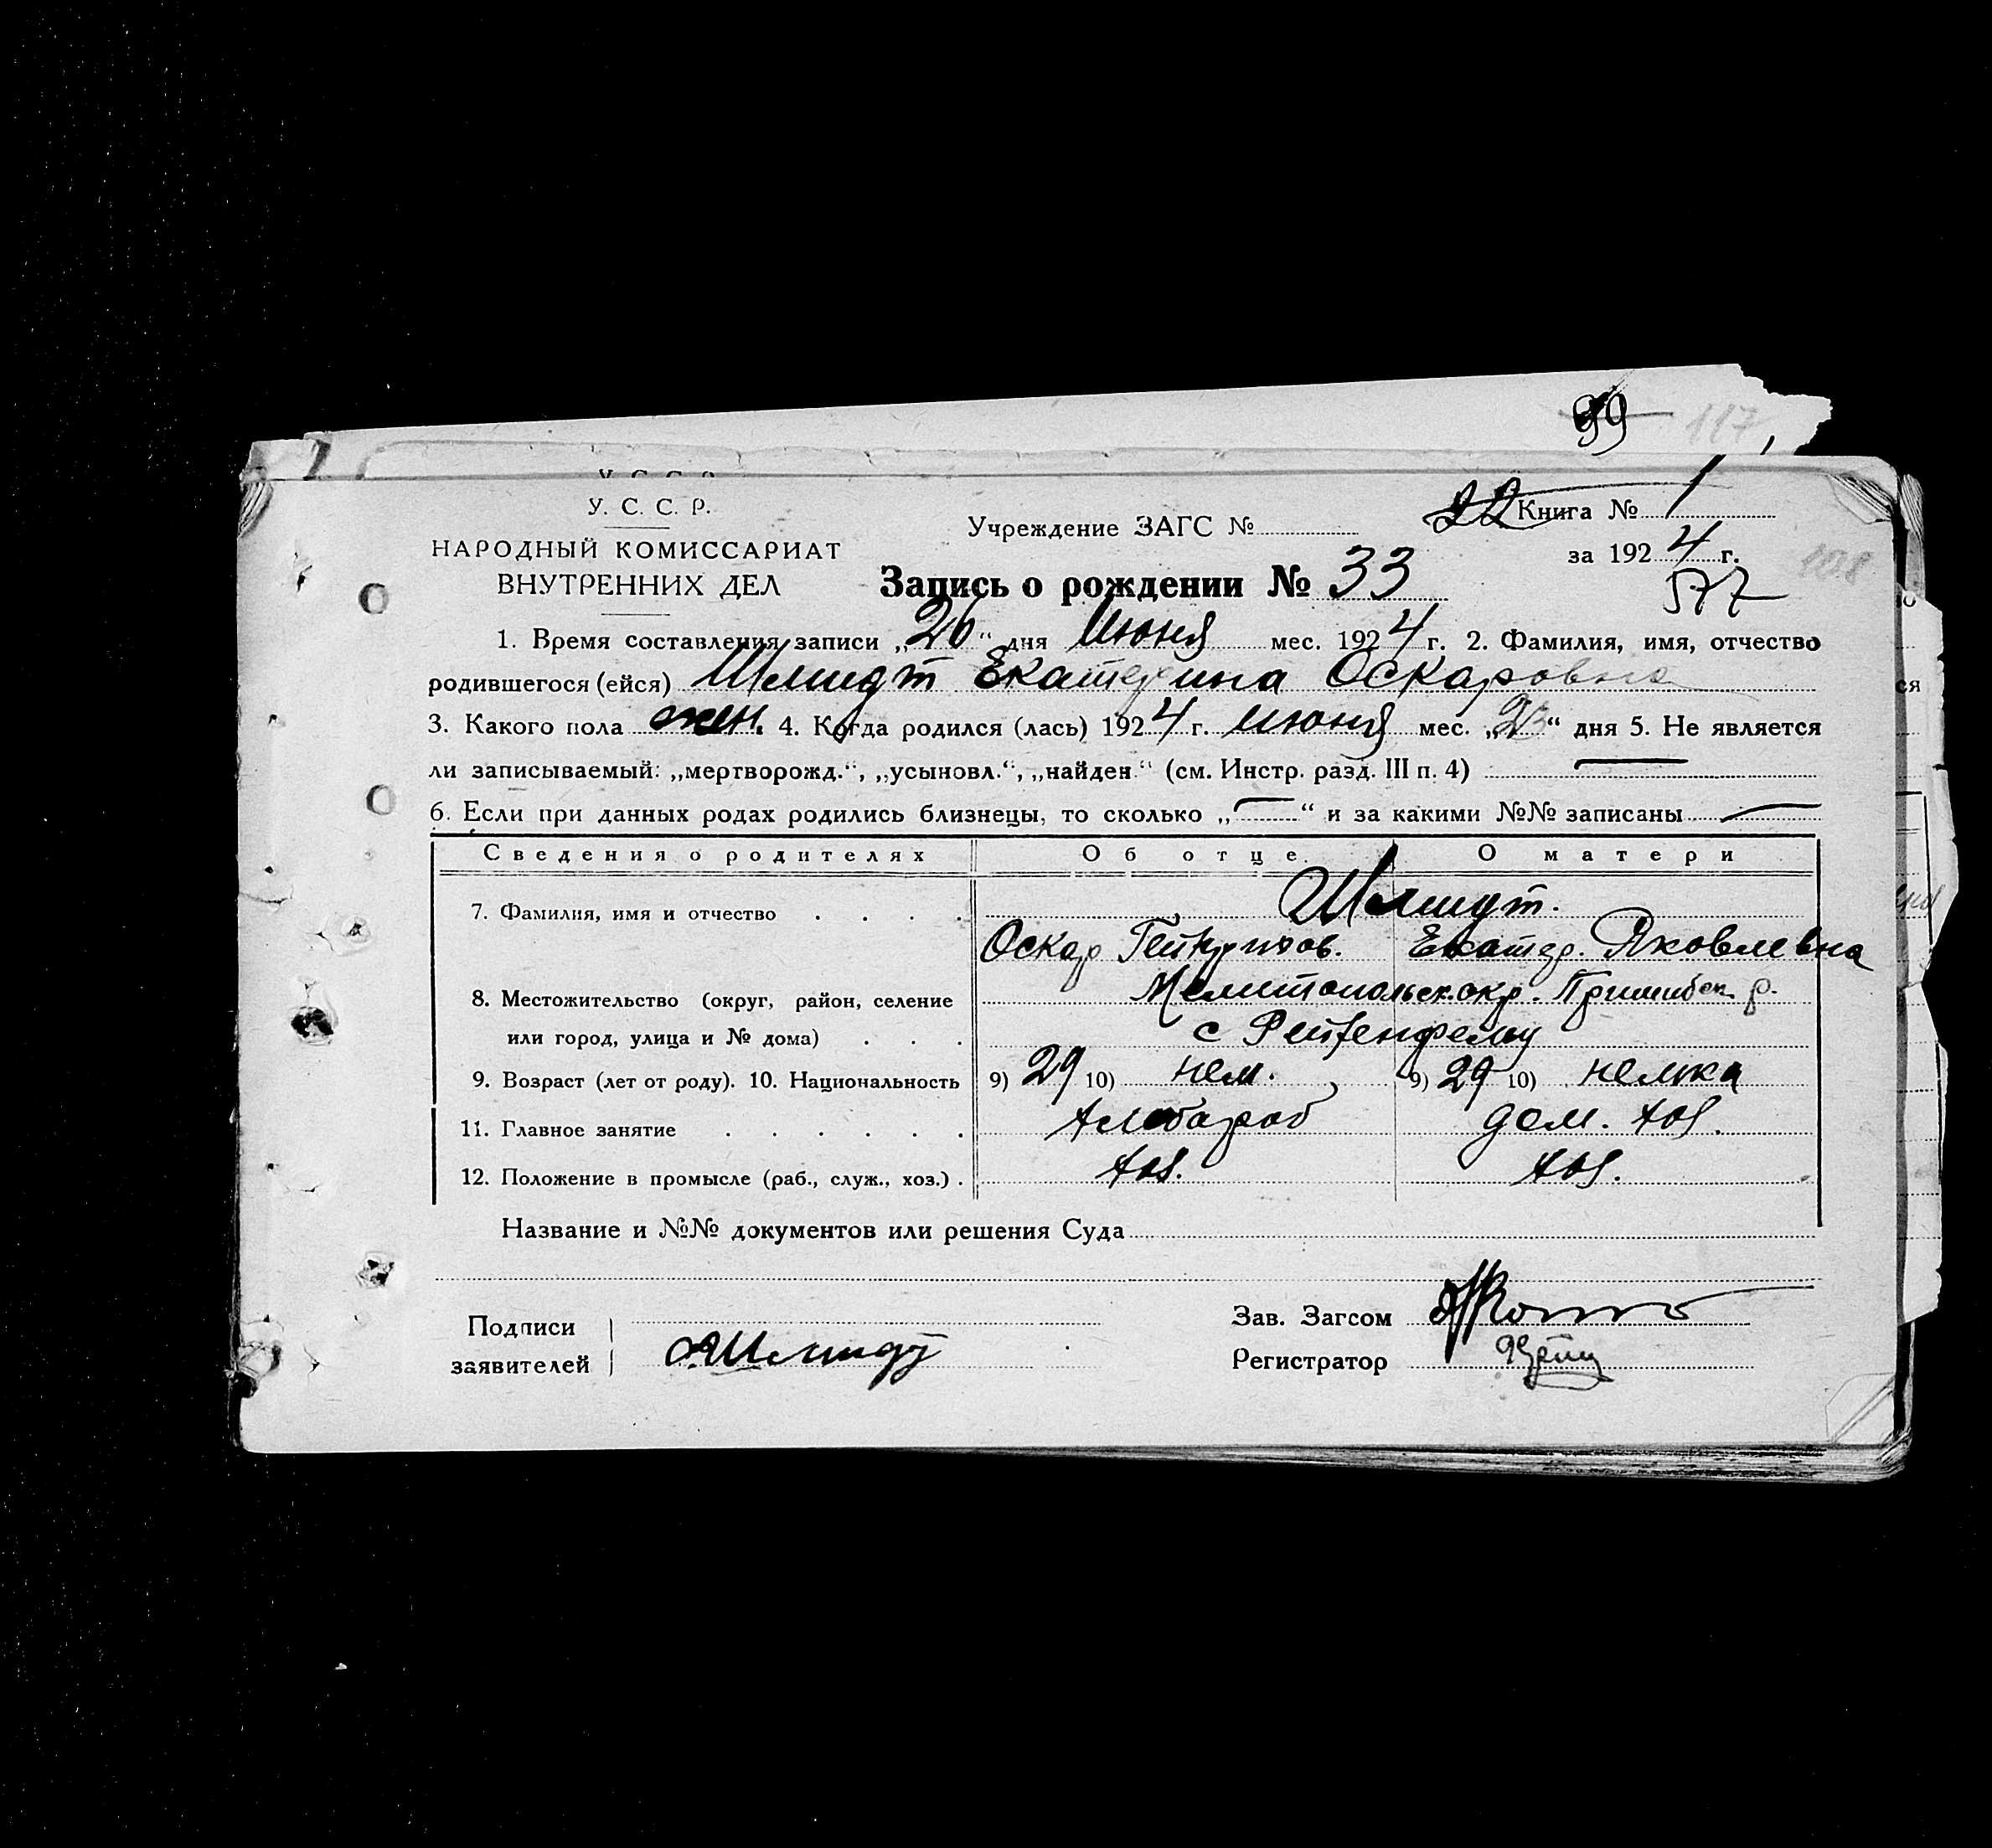 99 117
У. С. С. Р.
У. С. С. Р.
НАРОДНЫЙ КОМИССАРИАТ
ВНУТРЕННИХ ДЕЛ
Учреждение ЗАГС №
22 Книга № 1
за 1924 г. 108
Запись о рождении № 33
577
1. Время составления записи „26“ дня Июня мес. 1924 г. 2. Фамилия, имя, отчество
родившегося (ейся) Шмидт Екатерина Оскаровна
3. Какого пола жен. 4. Когда родился (лась) 1924 г. июня мес. „23“ дня 5. Не является
ли записываемый: „мертворожд.“, „усыновл.“, „найден“ (см. Инстр. разд. III п. 4) —
6. Если при данных родах родились близнецы, то сколько „—“ и за какими №№ записаны —
Сведения о родителях Об отце. О матери
7. Фамилия, имя и отчество . . . . Шмидт.
Оскар Гейнрихов. Екатер. Яковлевна
8. Местожительство (округ, район, селение Мелитопольск. окр. Пришибск. р.
или город, улица и № дома) . . . с Рейхенфельд
9. Возраст (лет от роду). 10. Национальность 9) 29 10) нем. 9) 29 10) немка
11. Главное занятие . . . . . . Хлебороб дом. хоз.
12. Положение в промысле (раб., служ., хоз.) . хоз. хоз.
Название и №№ документов или решения Суда
Подписи
заявителей О.Шмидт
Зав. Загсом
Регистратор